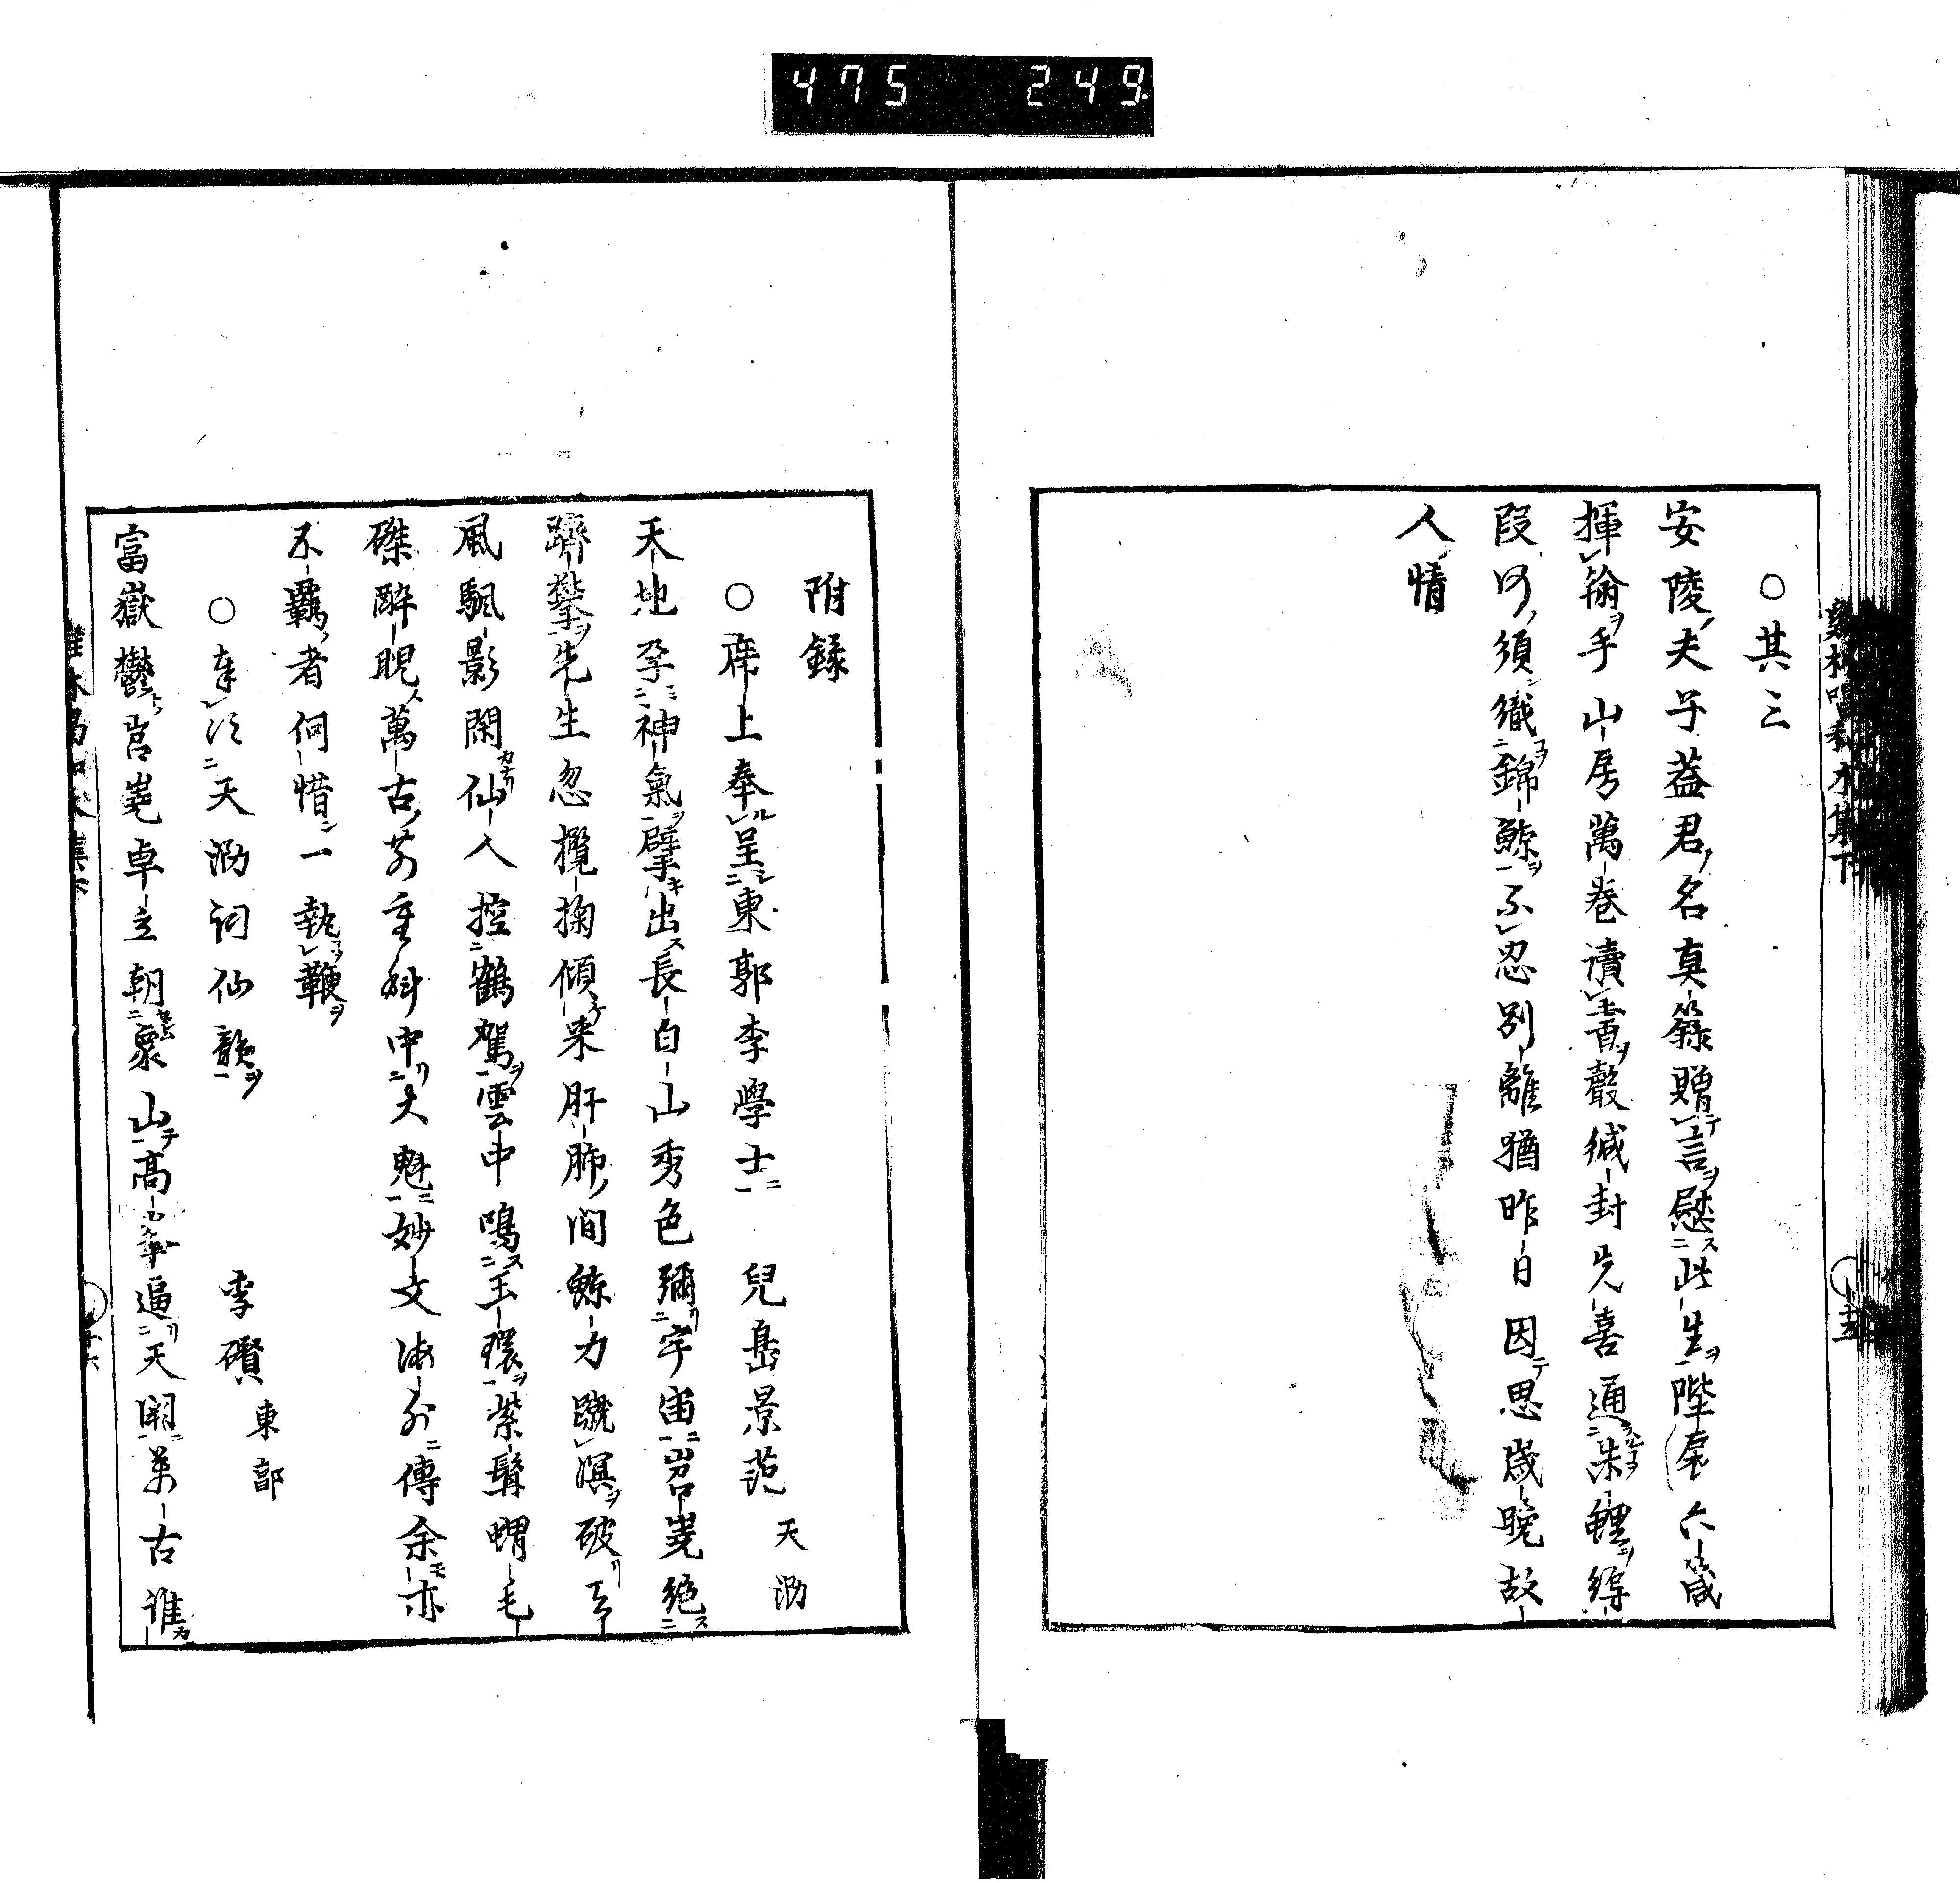 475 249
○其三
安陵夫子蓋君名真籙贈言慰此生陛 六箴
揮翰手山房萬卷讀書聲緘封先喜通朱鯉縟
段何須織錦鯨不忍別離猶昨日因思歲晚故
人情
附錄
○席上奉呈東郭李學士 兒島景范 天泐
天地孕神氣擘出長白山秀色彌宇宙岩嶤絕
躋攀先生忽攬掬傾來肝肺間鯨力蹴溟破
風颿影閑仙人控鶴駕雲中鳴玉環紫髯蝟毛
磔醉睨萬古 重科中大魁妙文海外傳余亦
不羈者何惜一執鞭
○奉次天泐詞仙韻 李礥 東郭
富嶽鬱岧嶤卓立朝衆山高 逼天開萬古誰